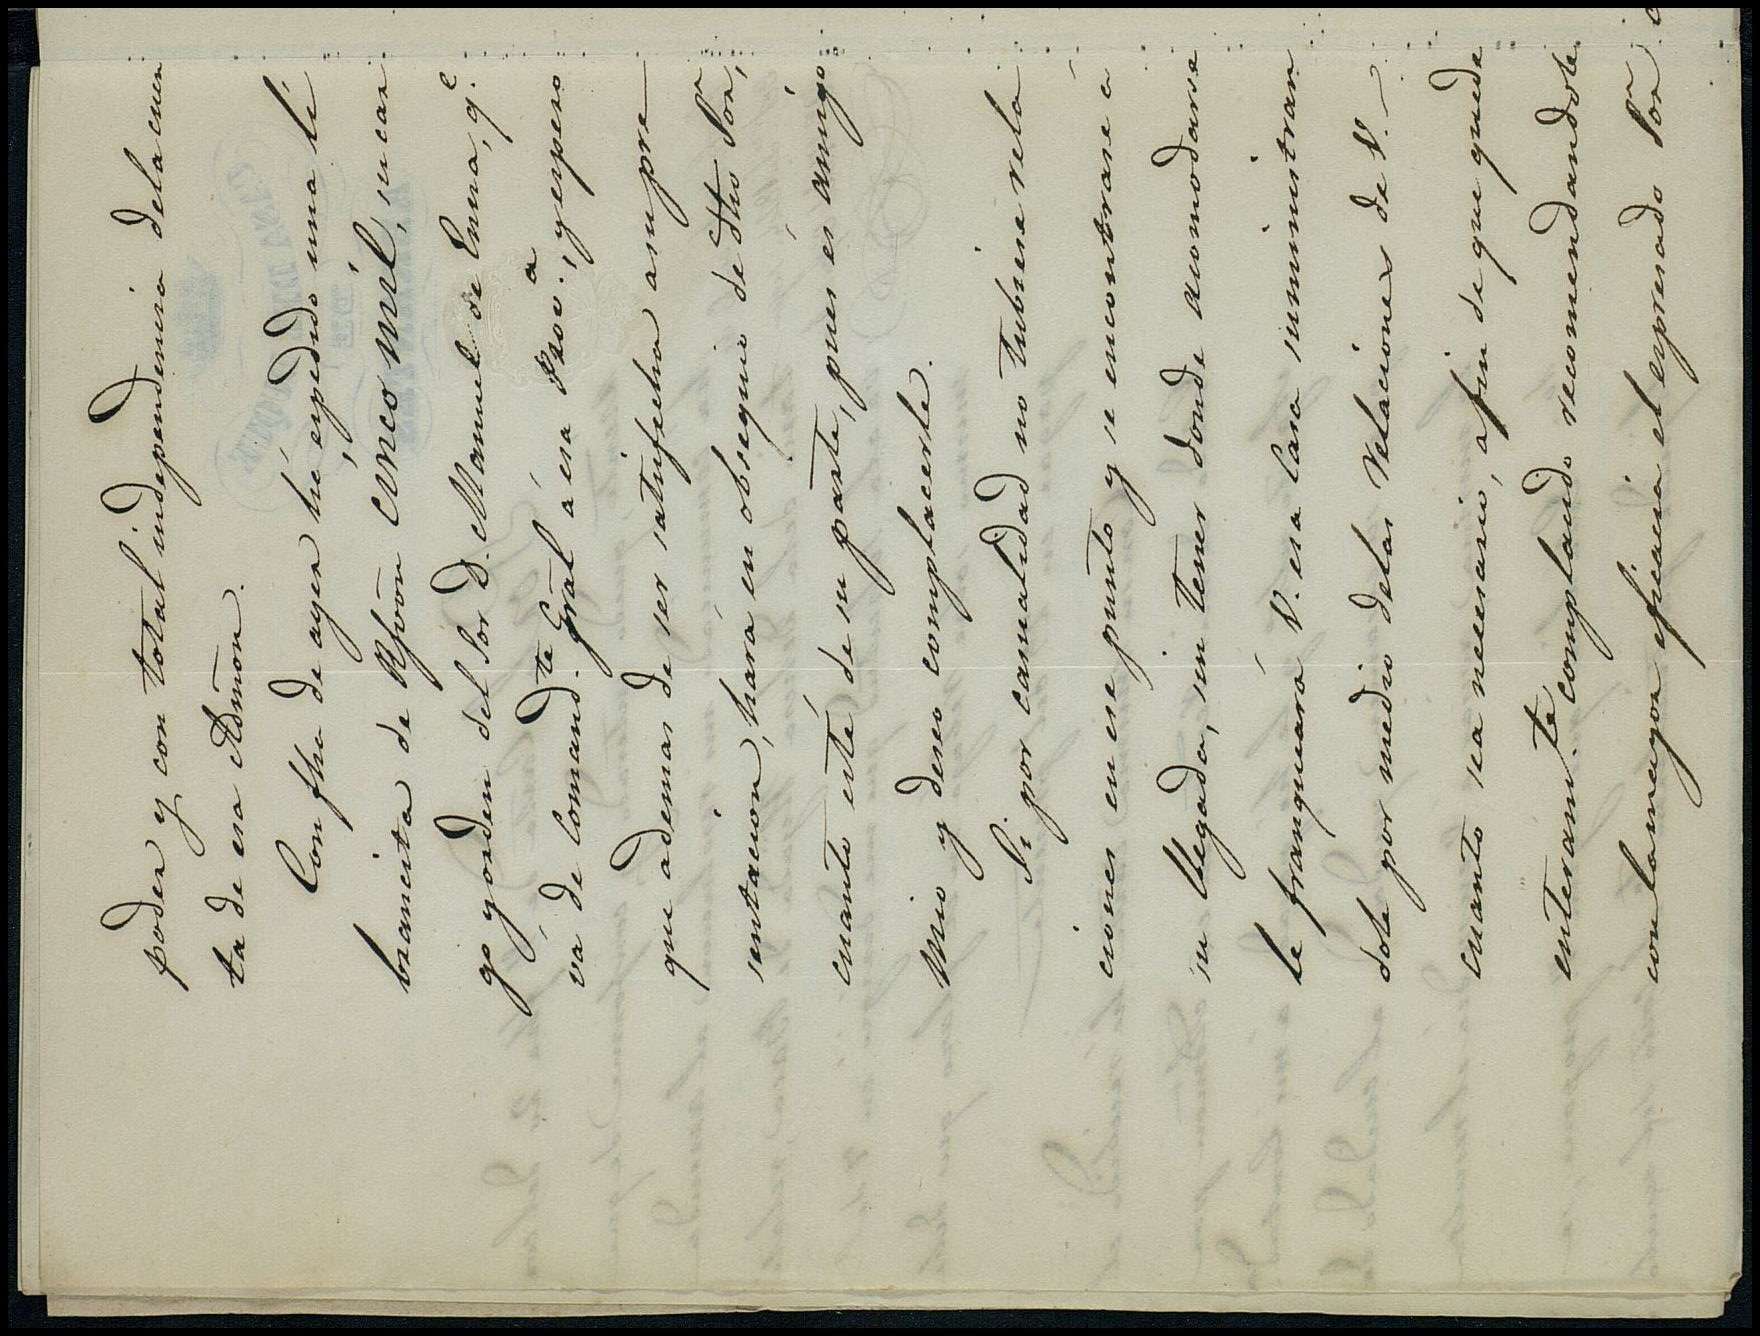 poder y con total independencia dela cuen
ta de esa Admōn.
Con fha de ayer hé espedido una li
brancita de Rsvōn cinco mil, su car
go y orden del Sor D. Manuel de Enna, q.e
vá de Comand.te Grāl á esa Prov.a, y espero
que ademas de ser satisfecha asu pre
sentacion, hará en obsequio de dho Sor,
cuanto esté de su parte, pues és amigo
mio y deseo complacerle.
Si por casualidad no tubiese rela
ciones en ese punto y se encontrase á
su llegada, sin tener donde acomodarse
le franqueará V. esa Casa suministran
dole por medio delas relaciones de V.
cuanto sea necesario, afin de que quede
enteram.te complacido recomendandole
con la mayor eficacia el espresado Sor á